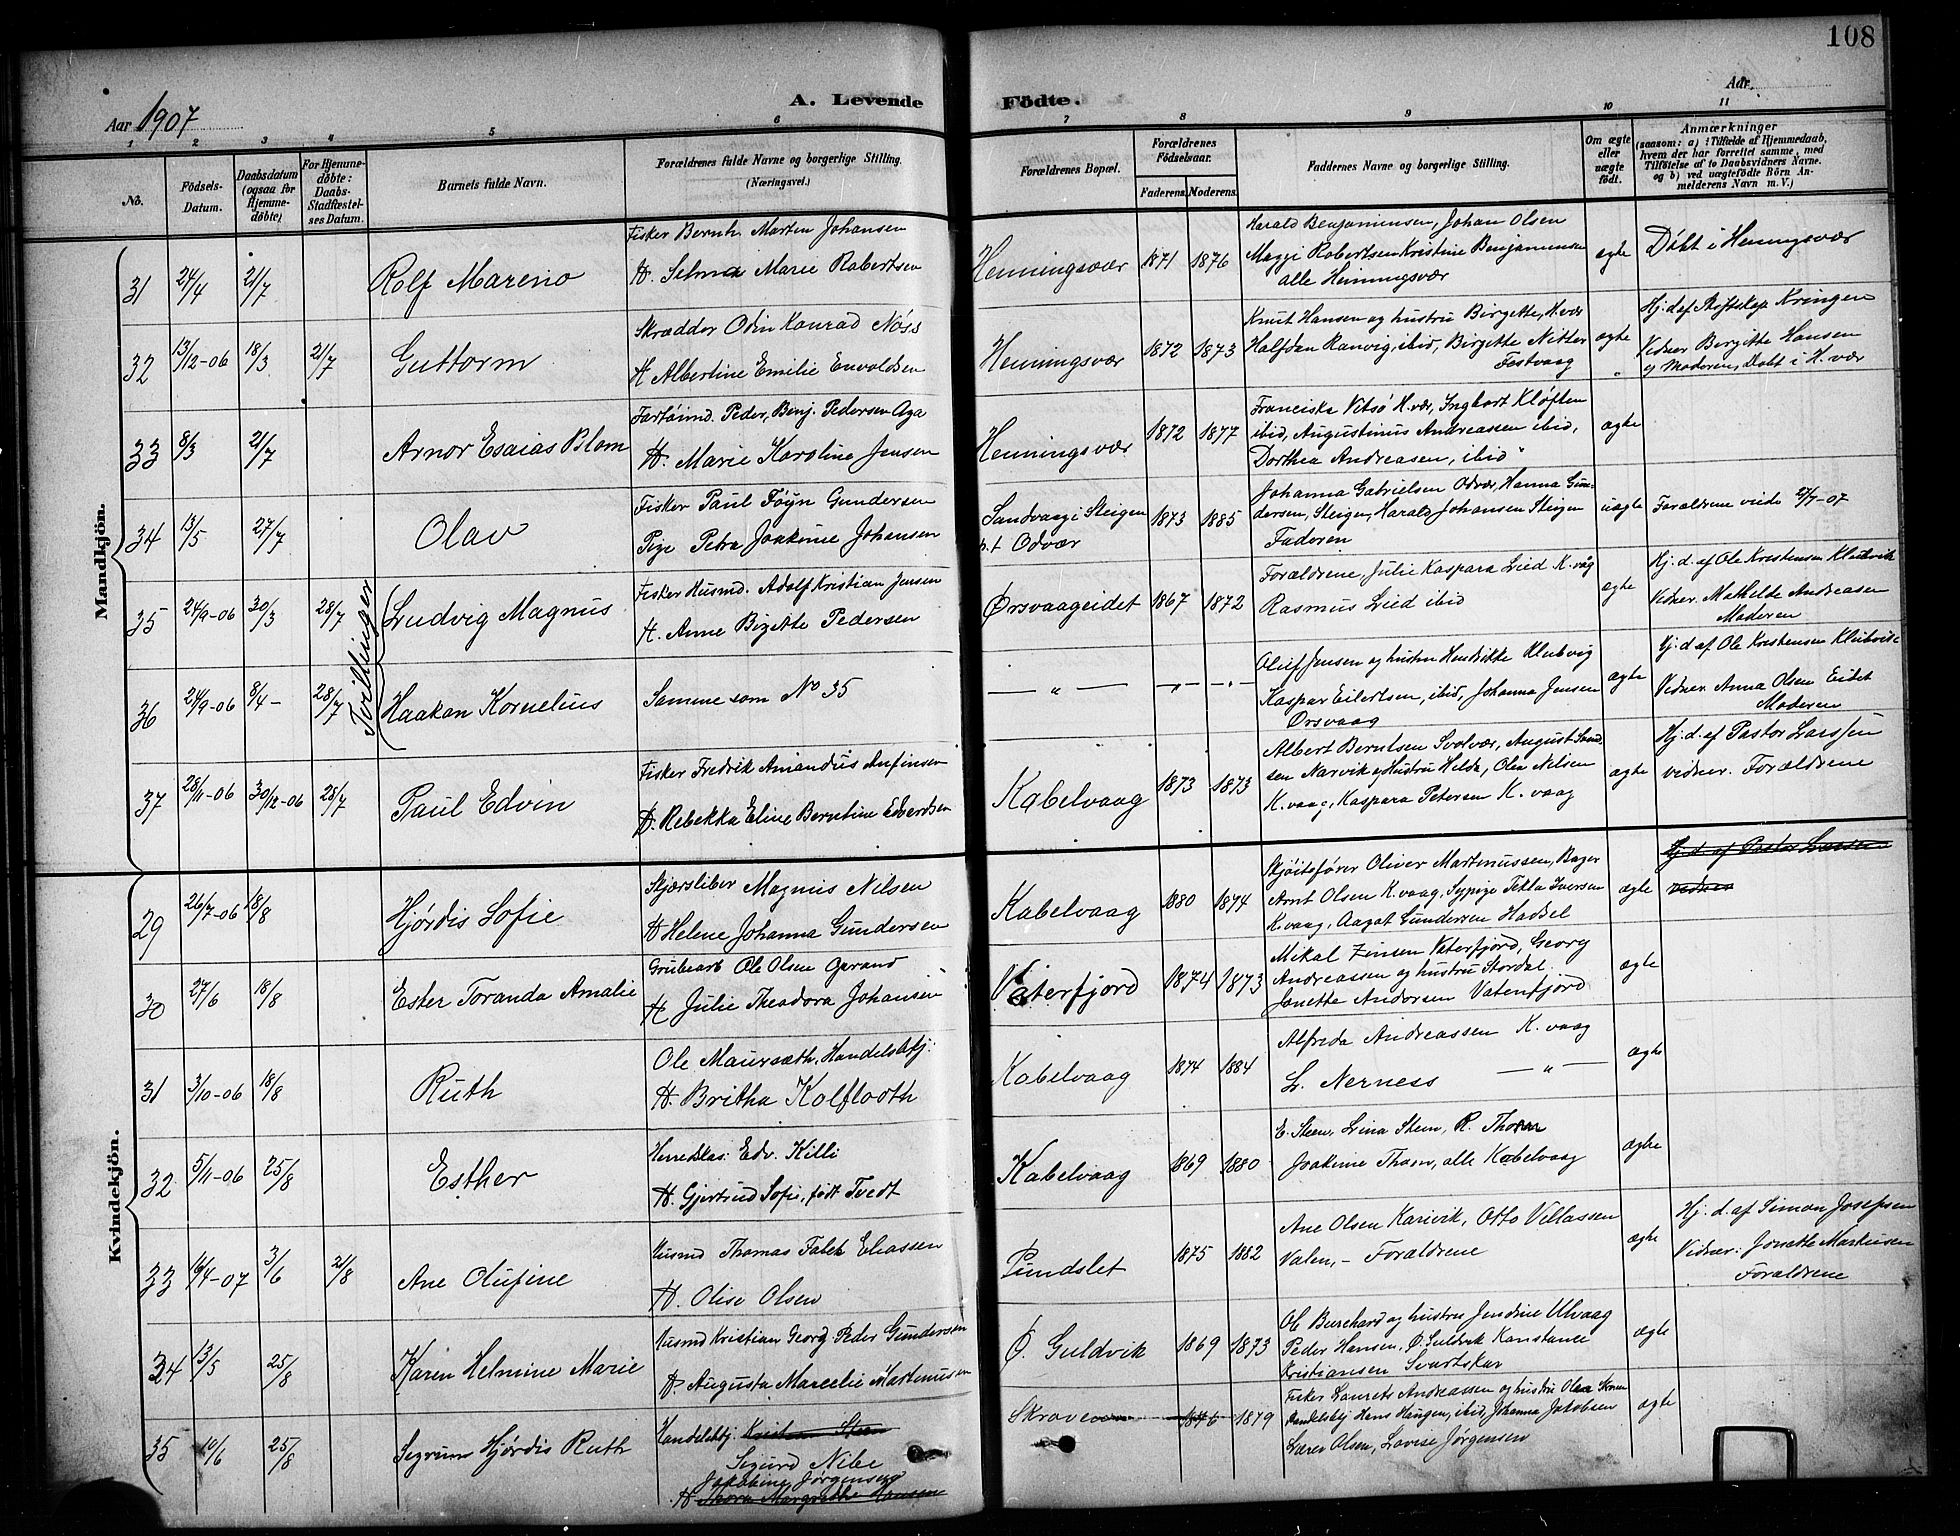 108
Aar 1907
A. Levende Födte.
Aar
1 2 3 4 5 6 7 8 9 10 11
No.
Födsels-Datum.
Daabsdatum (ogsaa for Hjemme-döbte)
For Hjemme-döbte: Daabs-Stadfæstel-ses Datum.
Barnets fulde Navn.
Forældrenes fulde Navne og borgerlige Stilling.
(Næringsvei.)
Forældrenes Bopæl.
Forældrenes Födselsaar.
Faderens. Moderens.
Faddernes Navne og borgerlige Stilling.
Om ægte eller uægte født.
Anmærkninger
(saasom: a) i Tilfælde af Hjemmedaab, hvem der har forrettet samme, med Tilföielse af to Daabsvidners Navne. og b) ved uægtefödte Börn An-melderens Navn m. V.)
Mandkjön.
31 24/4 21/7 Rolf Mareno
Fisker Bernh. Marten Johansen
H. Selma Marie Robertsen
Henningsvær 1871 1876
Harald Benjaminsen, Johan Olsen
Maggi Robertsen Kristine Benjaminsen
alle Henningsvær
ægte
Døbt i Henningsvær
32 13/12-06 18/3 21/7 Guttorm
Skrædder Odin Konrad Nöss
H Albertine Emilie Envoldsen
Henningsvær 1872 1873
Knut Hansen og hustru Birgette, H.vær
Halfdan Ranvig, ibid, Birgitte Nitter
Festvaag
ægte
Hj. d af Kringen
Vidner Birgitte Hansen
og Moderen, Døbt i H. vær
33 8/3 21/7 Arnor Esaias Blom
Fartöimd. Peder, Benj. Pedersen Aga
H. Marie Karoline Jensen
Henningsvær 1872 1877
Franciska Vitsö H.vær, Ingbart Kløften
ibid, Augustinus Andreassen ibid,
Dorthea Andreasen, ibid
ægte
34 13/5 27/7 Olav
Fisker Paul Föyn Gundersen
Pige Petra Joakine Johansen
Sandvaag i Steigen
p.t Odvær
1873 1885
Johanna Gabrielsen Odvær, Hanna Gun-
dersen, Steigen, Harald Johansen Steigen
Faderen
uægte
Forældrene viede 27/7-07
Tvillinger
35 24/9-06 30/3 28/7 Ludvig Magnus
Fisker Husmd. Adolf Kristian Jensen
H. Anne Birgitte Pedersen
Ørsvaageidet 1867 1872
Forældrene, Julie Kaspara Lied K.våg
Rasmus Lied ibid
ægte
Hj. d. af Ole Kristensen Klubvik
Vidner. Mathilde Andreasen
Moderen
36 24/9-06 8/4 - 28/7 Haakan Kornelius
Samme som No 35
— „ — — „ — — „ —
Oluf Jensen og hustru Henrikke Klubvig
Kaspar Eilertsen, ibid, Johanna Jensen
Ørsvaag
ægte
Hj. d af Ole Kristensen Klubvik
Vidner Anna Olsen Eidet
Moderen
37 28/11-06 30/12-06 28/7 Paul Edvin
Fisker Fredrik Amandus Anfinsen
H. Rebekka Eline Berntine Edvardsen
Kabelvaag 1873 1873
Albert Berntsen Svolvær, August Svend-
sen Narvik og Hustru Helda, Ole Nelsen
K. vaag, Kaspara Petersen K. vaag
ægte
Hj. d. af Pastor Larssen
vidner. Forældrene
Kvindekjön.
29 26/7-06 18/8 Hjørdis Sofie
Skjærsliber Magnus Nilsen
H Helene Johanna Gundersen
Kabelvaag 1880 1874
Skjöitefører Oliver Martinussen, Bager
Arnt Olsen K.vaag, Sypige Tekla Iversen
K.vaag, Aagot Gundersen Hadsel
ægte
Hj. d. af Pastor Larssen
vidner
30 27/6 18/8 Ester Toranda Amalie
Grubearb Ole Olsen Gjerand
H Julie Theodora Johansen
Vaterfjord 1874 1873
Mikal Zinsen Vaterfjord, Georg
Andreassen og hustru Stordal
Jonette Andorsen Vatenfjord
ægte
31 3/10-06 18/8 Ruth
Ole Maursæth, Handelsbtj:
H. Britha Kolfloöth
Kabelvaag 1874 1884
Alfreda Andreassen K. vaag
L. Nerness — „ —
ægte
32 5/11-06 25/8 Esther
Herredskas: Edv. Killi
H. Gjertrud Sofie, født Tvedt
Kabelvaag 1869 1880
E. Steen, Lina Steen, R. Thom
Joakine Thom, alle Kabelvaag
ægte
33 16/4-07 3/6 21/8 Ane Olufine
Husmd Thomas Falch Eliassen
H. Olise Olsen
Pundslet 1875 1882
Ane Olsen Karivik, Otto Villassen
Valen, - Forældrene
ægte
Hj. d. af Simon Josefsen
Vidner: Jonette Markusen
Forældrene
34 13/5 25/8 Karen Helmine Marie
Husmd Kristian Georg Peder Gundersen
H. Augusta Marcelie Martinusen
Ø. Guldvik 1869 1873
Ole Burchard og hustru Jendine Ulvaag
Peder Hansen, Ø. Guldvik Konstance
Kristiansen Svartskar
ægte
35 10/6 25/8 Sigrun Hjørdis Ruth
Handelsbtj: Kristian Steen
Sigurd Nibe
Jakobine Jørgensen
H Thora Margrethe Hansen
Skroven 1846 1879
Fisker Laurets Andreassen og hustru Olea Skroven
Handelsbtj Hans Haugen, ibid, Johanna Jakobsen
Lærer Olsen, Lovise Jørgensen
ægte